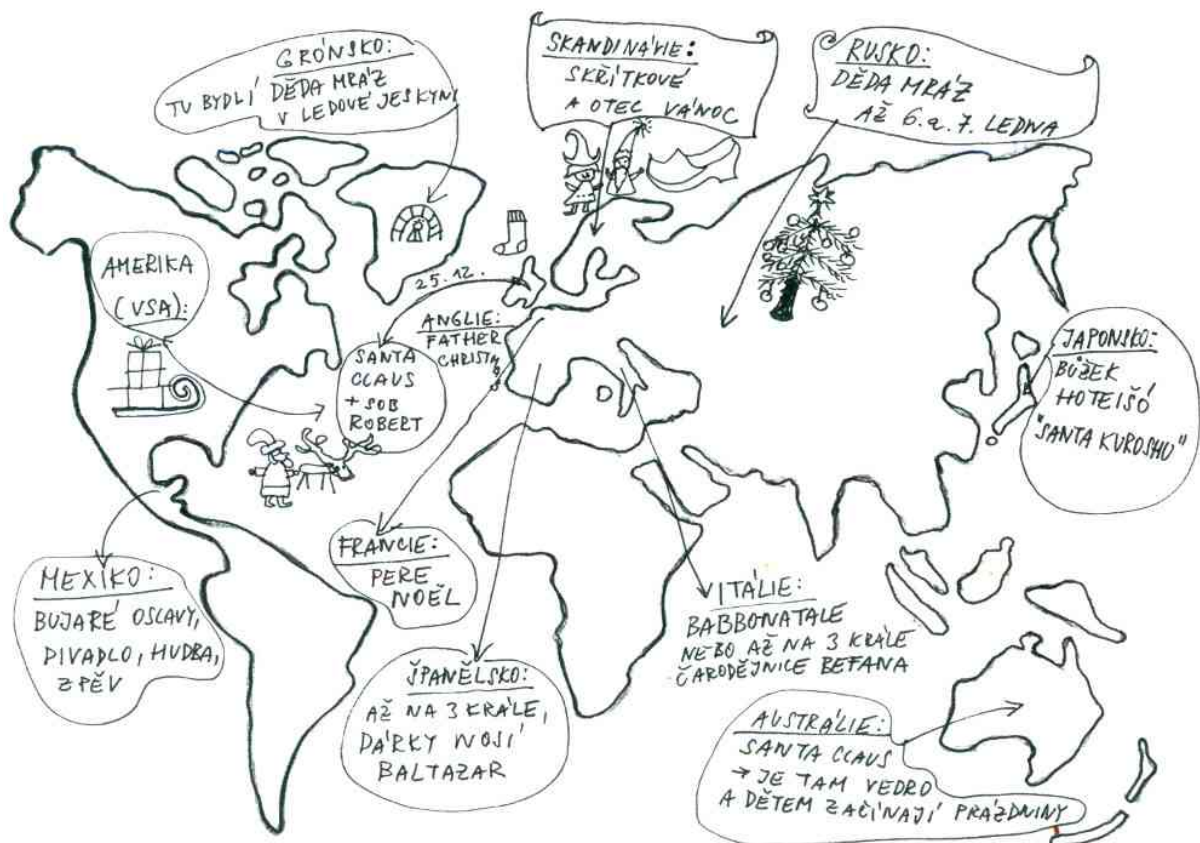 GRÓNSKO:
TU BYDLÍ DĚDA MRÁZ
V LEDOVÉ JESKYNI
SKANDINÁVIE:
SKŘÍTKOVÉ
A OTEC VÁNOC
RUSKO:
DĚDA MRÁZ
AŽ 6. a 7. LEDNA
AMERIKA
(USA):
25.12.
ANGLIE:
FATHER
CHRISTM
SANTA
CLAUS
+ SOB
ROBERT
JAPONSKO:
BŮŽEK
HOTEIŠÓ
"SANTA KUROSHU"
MEXIKO:
BUJARÉ OSLAVY,
DIVADLO, HUDBA,
ZPĚV
FRANCIE:
PERE
NOËL
ŠPANĚLSKO:
AŽ NA 3 KRÁLE,
DÁRKY NOSÍ
BALTAZAR
ITÁLIE:
BABBONATALE
NEBO AŽ NA 3 KRÁLE
ČARODĚJNICE BEFANA
AUSTRÁLIE:
SANTA CLAUS
→ JE TAM VEDRO
A DĚTEM ZAČÍNAJÍ PRÁZDNINY